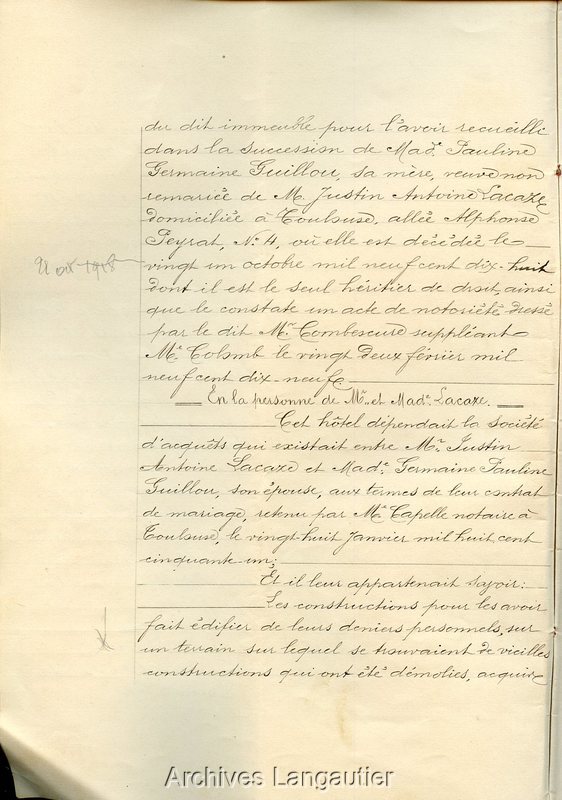 du dit immeuble pour l'avoir recueilli
dans la succession de Made Pauline
Germaine Guillou, sa mère, veuve non
remariée de M. Justin Antoine Lacaze
domiciliée à Toulouse, allée Alphonse
Peyrat, No 4, où elle est décédée le
21 oct 1918
vingt un octobre mil neuf cent dix-huit
dont il est le seul héritier de droit, ainsi
que le constate un acte de notoriété dressé
par le dit Me Combescure suppléant
Me Colomb le vingt deux février mil
neuf cent dix-neuf
En la personne de Mr. et Made Lacaze.
Cet hôtel dépendait la société
d'acquêts qui existait entre Mr. Justin
Antoine Lacaze et Made Germaine Pauline
Guillou, son épouse, aux termes de leur contrat
de mariage, retenu par Me Capelle notaire à
Toulouse, le vingt-huit Janvier mil huit cent
cinquante-un;
Et il leur appartenait savoir:
Les constructions pour les avoir
fait édifier de leurs deniers personnels, sur
un terrain sur lequel se trouvaient de vieilles
constructions qui ont été démolies, acquis
Archives Langautier